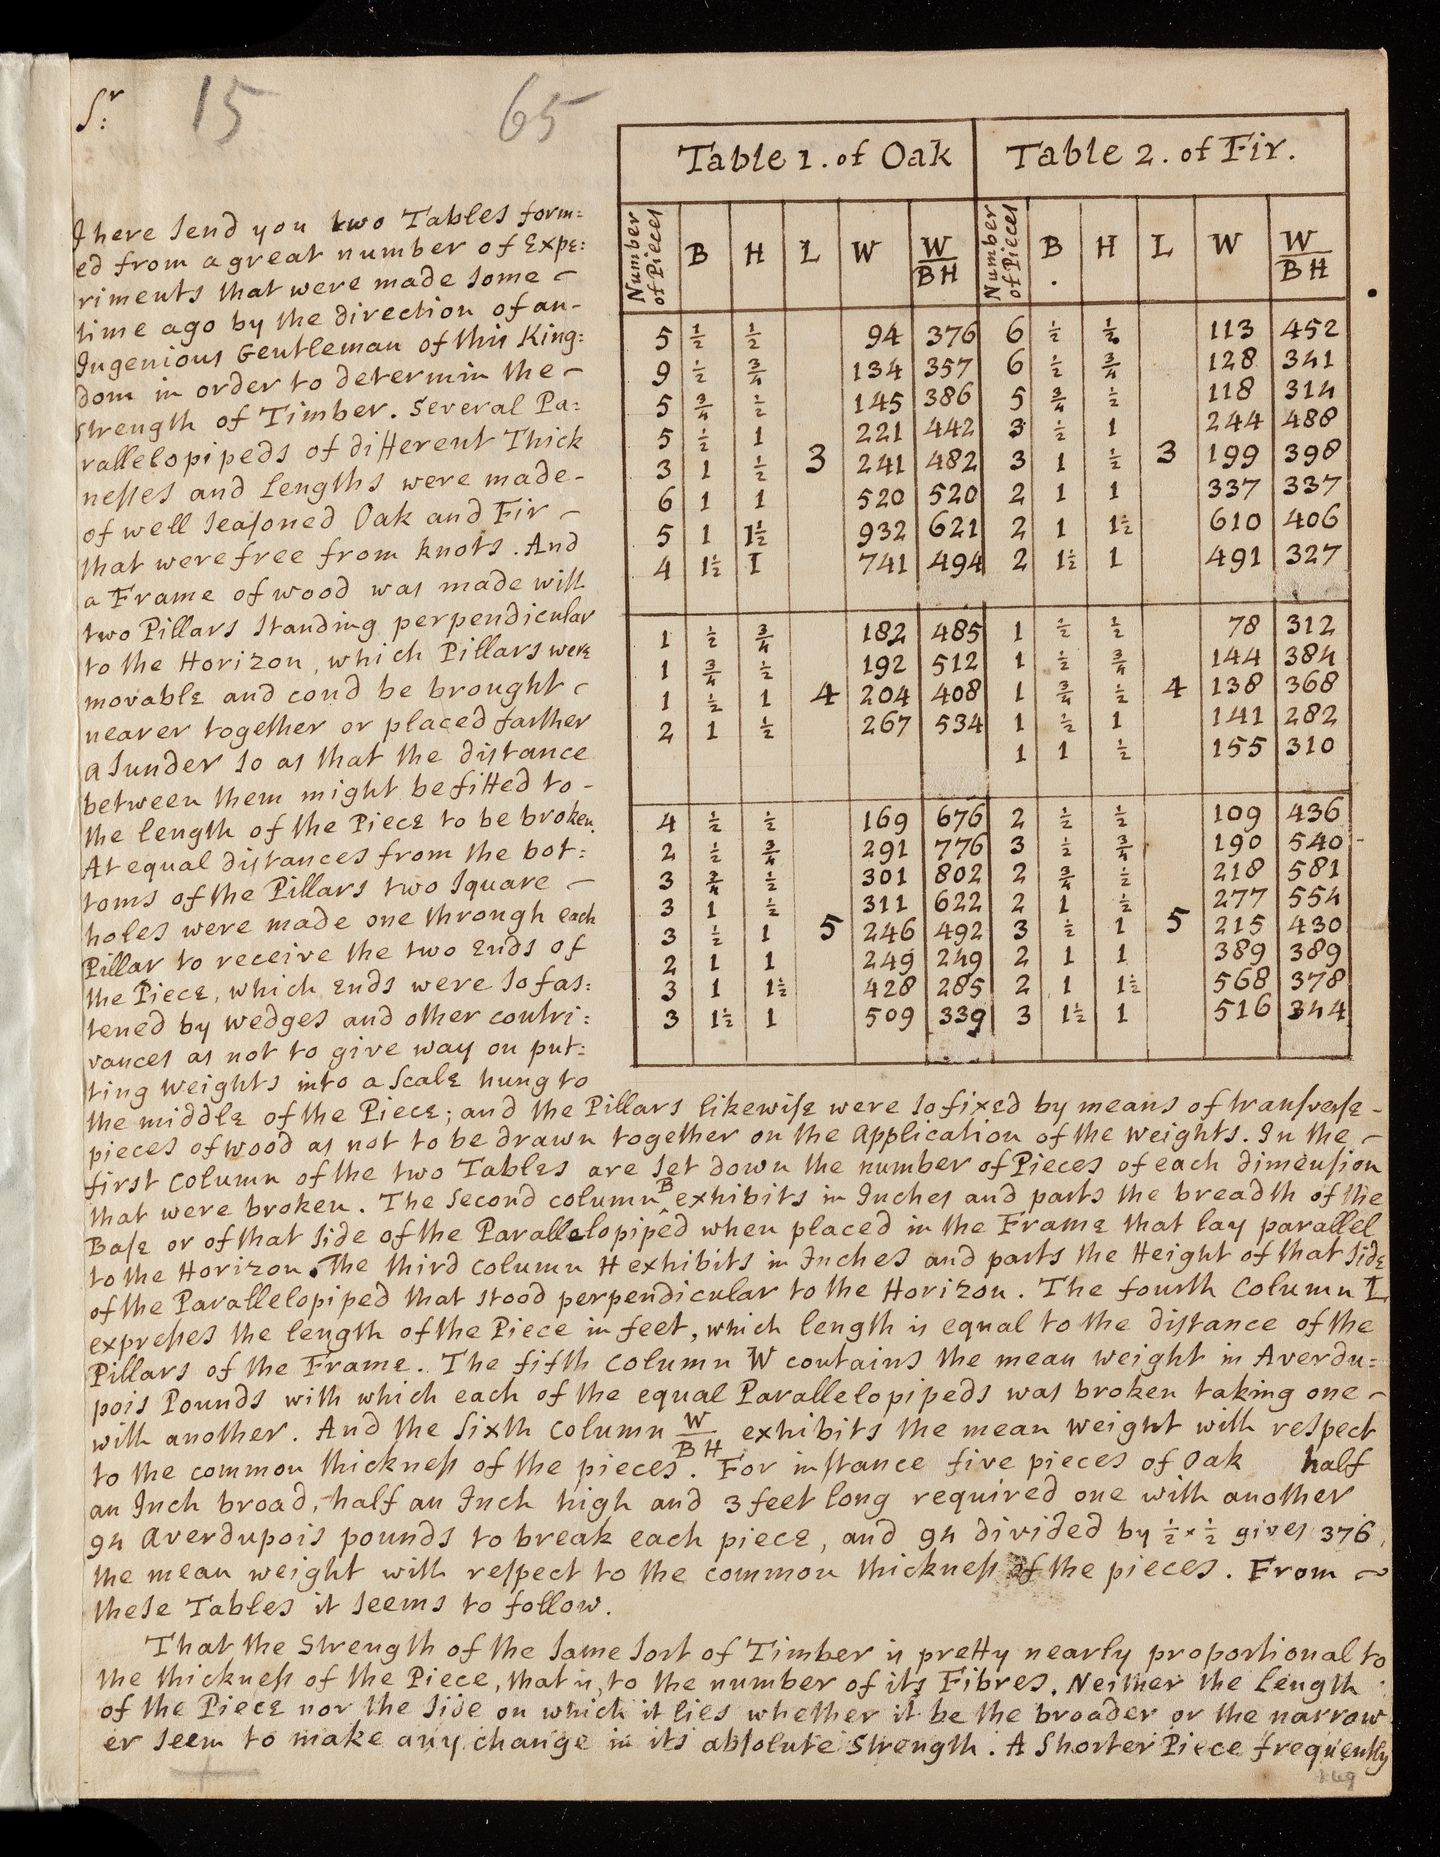 Sr:
15
65
I here send you two Tables form=
ed from a great number of Expe:
riments that were made some –
time ago by the direction of an-
Ingenious Gentleman of this King:
dom in order to determin the –
strength of Timber. Several Pa:
rallelopipeds of different Thick
nesses and Lengths were made-
of well seasoned Oak and Fir –
that were free from knots. And
a Frame of wood was made with
two Pillars standing perpendicular
to the Horizon, which Pillars were
movable and coud be brought –
nearer together or placed farther
asunder so as that the distance
between them might be fitted to -
the length of the Piece to be broken.
At equal distances from the bot:
toms of the Pillars two square –
holes were made one through each
Pillar to receive the two Ends of
the Piece, which Ends were so fas:
tened by wedges and other contri:
vances as not to give way on put:
ting weights into a Scale hung to
Table 1. of Oak
Number of Pieces B H L W W/BH
5 ½ ½ 94 376
9 ½ ¾ 134 357
5 ¾ ½ 145 386
5 ½ 1 221 442
3 1 ½ 3 241 482
6 1 1 520 520
5 1 1½ 932 621
4 1½ 1 741 494
1 ½ ¾ 182 485
1 ¾ ½ 192 512
1 ½ 1 4 204 408
2 1 ½ 267 534
4 ½ ½ 169 676
2 ½ ¾ 291 776
3 ¾ ½ 301 802
3 1 ½ 311 622
3 ½ 1 5 246 492
2 1 1 249 249
3 1 1½ 428 285
3 1½ 1 509 339
Table 2. of Fir.
Number of Pieces B. H L W W/BH
6 ½ ½ 113 452
6 ½ ¾ 128 341
5 ¾ ½ 118 314
3 ½ 1 244 488
3 1 ½ 3 199 398
2 1 1 337 337
2 1 1½ 610 406
2 1½ 1 491 327
1 ½ ½ 78 312
1 ½ ¾ 144 384
1 ¾ ½ 4 138 368
1 ½ 1 141 282
1 1 ½ 155 310
2 ½ ½ 109 436
3 ½ ¾ 190 540
2 ¾ ½ 218 581
2 1 ½ 277 554
3 ½ 1 5 215 430
2 1 1 389 389
2 1 1½ 568 378
3 1½ 1 516 344
the middle of the Piece; and the Pillars likewise were so fixed by means of transverse -
pieces of wood as not to be drawn together on the Application of the weights. In the –
first Column of the two Tables are set down the number of Pieces of each dimension
that were broken. The Second column B exhibits in Inches and parts the breadth of the
Base or of that side of the Parallelopiped when placed in the Frame that lay parallel
to the Horizon. The third column H exhibits in Inches and parts the Height of that side
of the Parallelopiped that stood perpendicular to the Horizon. The fourth Column L
expresses the length of the Piece in feet, which length is equal to the distance of the
Pillars of the Frame. The fifth column W contains the mean weight in Averdu=
pois Pounds with which each of the equal Parallelopipeds was broken taking one –
with another. And the Sixth Column W/BH exhibits the mean weight with respect
to the common thickness of the pieces. For instance five pieces of Oak half
an Inch broad, half an Inch high and 3 feet long required one with another
94 Averdupois pounds to break each piece, and 94 divided by ½ × ½ gives 376,
the mean weight with respect to the common thickness of the pieces. From –
these Tables it seems to follow.
That the Strength of the same sort of Timber is pretty nearly proportional to
the thickness of the Piece, that is, to the number of its Fibres. Neither the Length
of the Piece nor the Side on which it lies whether it be the broader or the narrow
er seem to make any change in its absolute strength. A Shorter Piece frequently